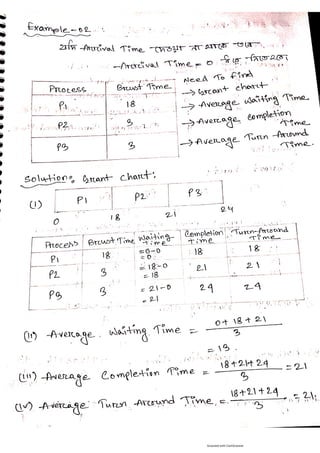 Example - 02
যদি Arrival Time দেওয়া না থাকে তবে
Arrival Time = 0
Need To find
→ Grant chart
→ Average Waiting Time
→ Average Completion Time
→ Average Turn Around Time.
Process Brust Time
P1 18
P2 3
P3 3
Solution: Grant chart:
(i) P1 P2 P3
0 18 21 24
Process Brust Time Waiting Time Completion Time Turn Around Time
P1 18 =0-0 =0 18 18
P2 3 = 18-0 = 18 21 21
P3 3 = 21-0 = 21 24 24
(ii) Average Waiting Time = 0+18+21 / 3
= 13
(iii) Average Completion Time = 18+21+24 / 3 = 21
(iv) Average Turn Around Time = 18+21+24 / 3 = 21
Scanned with CamScanner